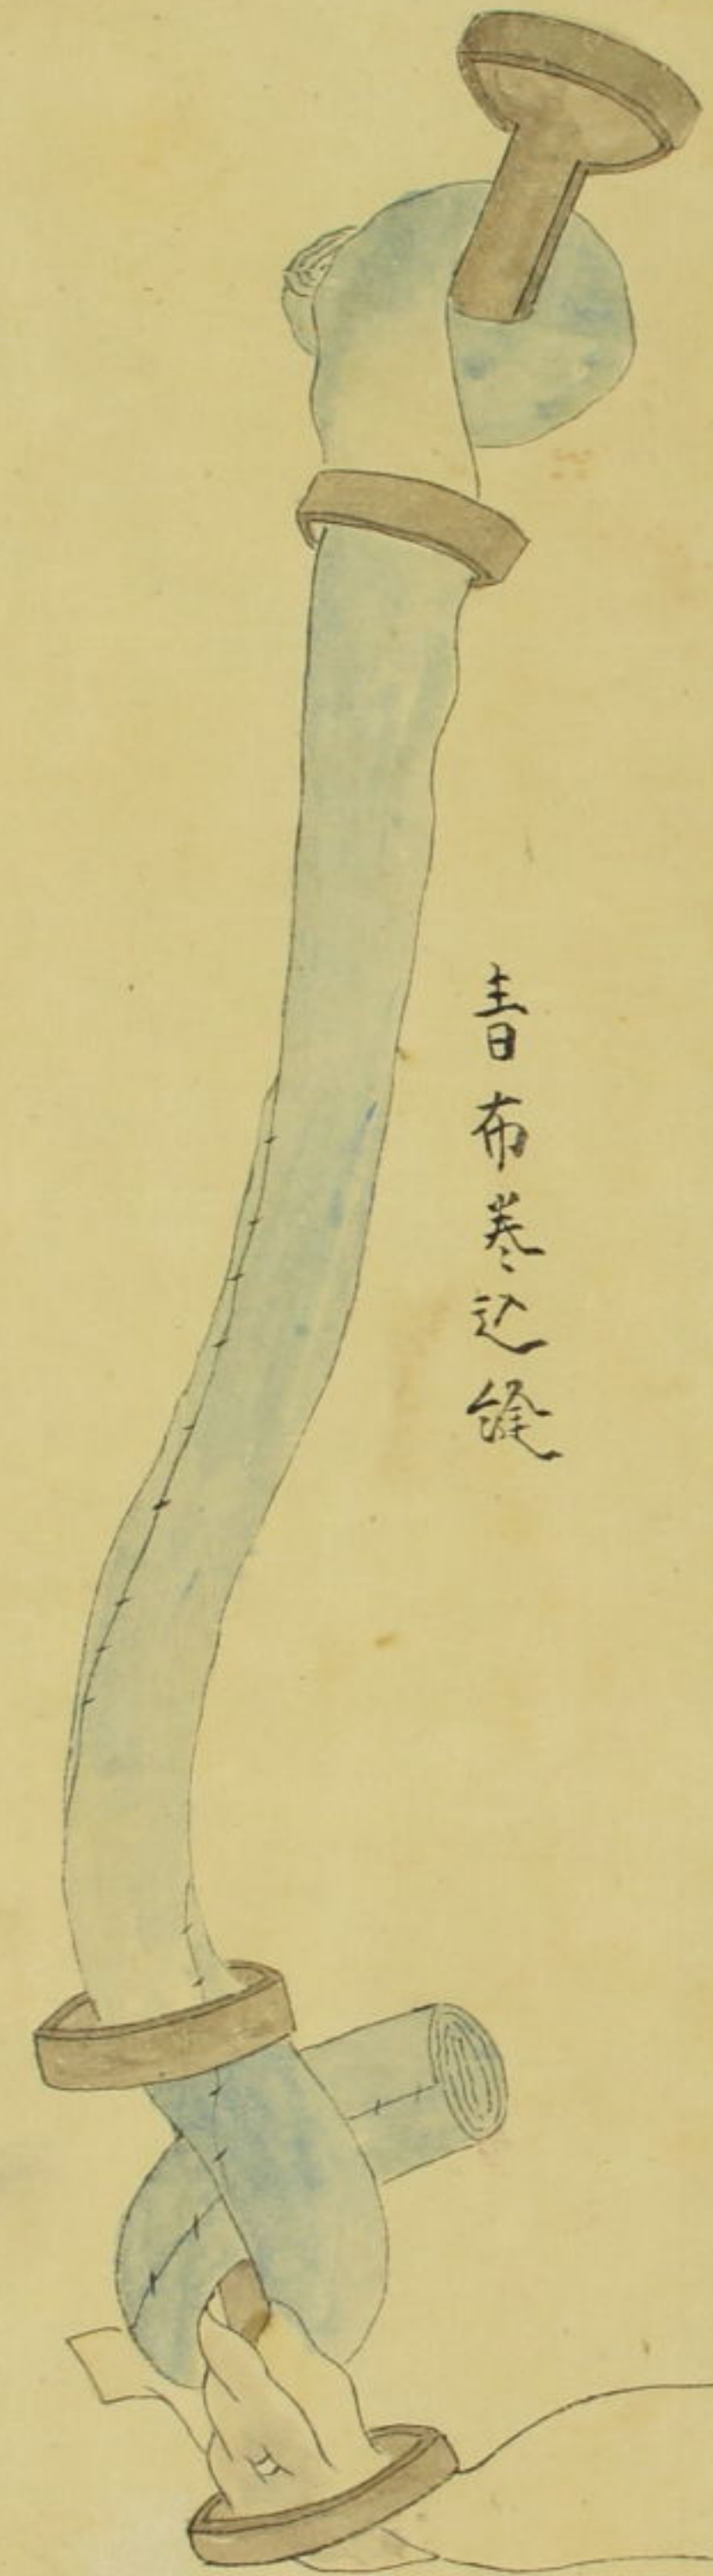 青布巻込縫